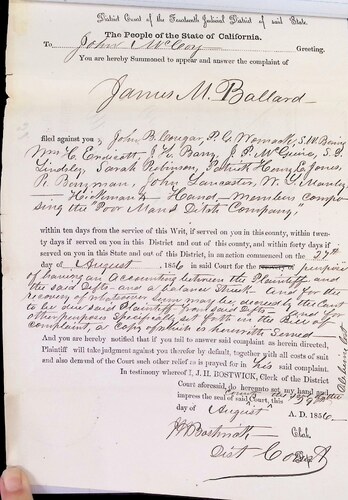 District Court of the Fourteenth Judicial District of said State.
The People of the State of California.
To John McCoy Greeting.
You are hereby Summoned to appear and answer the complaint of
James M. Ballard
filed against you, John B. Cougar, P. C. Womack, S. W. Being
Wm H. Endicott J. H. Bany, J. P. McGuire, S. S.
Lindsley, Sarah Robinson, Patrick Henry E. Jones,
P. Bergman, John Lancaster, W. G. Manley,
Hickman & Hand - Members Compo-
sing the "Poor Mans Ditch Company,"
within ten days from the service of this Writ, if served on you in this county, within twen-
ty days if served on you in this District and out of this county, and within forty days if
served on you in this State and out of this District, in an action commenced on the 27th
day of August 1856 in said Court for the purpose
of having an accounting between the Plaintiff and
the said Defts - and a balance struck - And for the
recovery of whatever sum may be decreed by the Court
to be due said Plaintiff from said Defts - And for
other purposes Specifically set forth in the Bill of
Complaint, a copy of which is herewith Served
And you are hereby notified that if you fail to answer said complaint as herein directed,
Plaintiff will take judgment against you therefor by default, together with all costs of suit
and also demand of the Court such other relief as is prayed for in his said complaint.
In testimony whereof I, J. H. BOSTWICK, Clerk of the District
Court aforesaid, do hereunto set my hand and
impress the seal of said Court, this 29th
day of August A. D. 1856.
J H Bostwick Clerk.
Dist Court